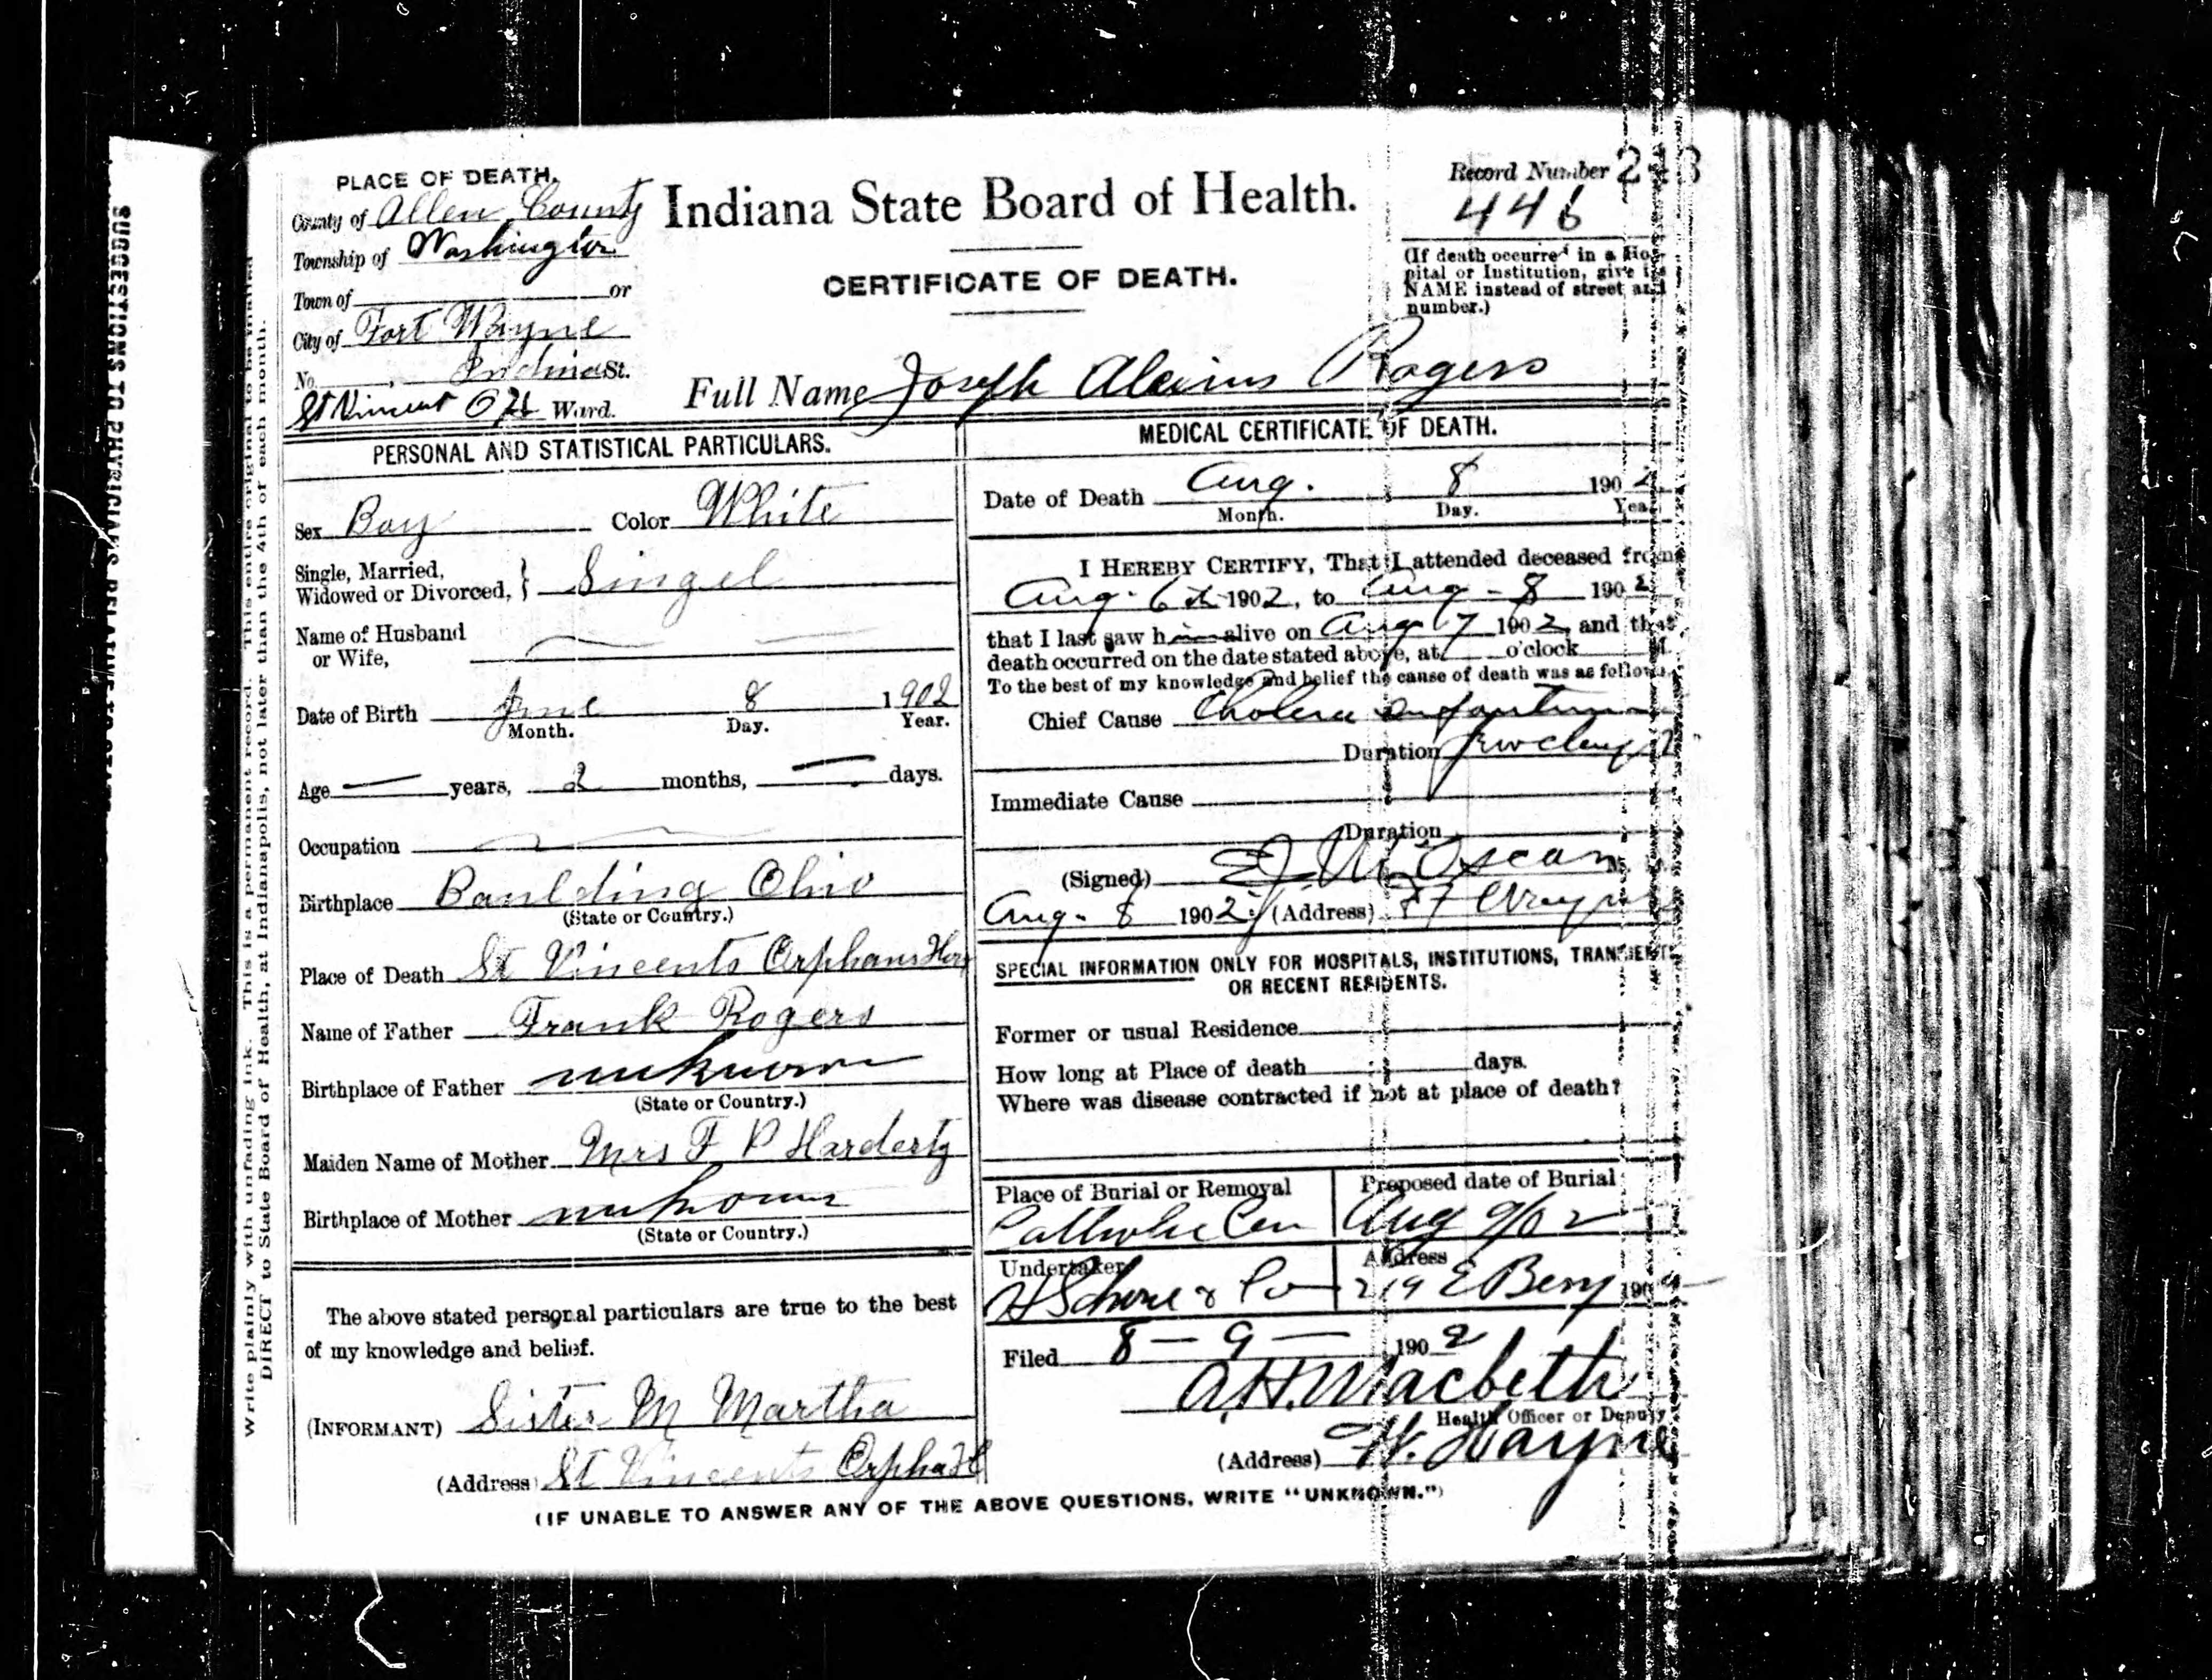 PLACE OF DEATH.
County of Allen County
Township of Washington
Town of or
City of Fort Wayne
No. , Indiana St.
St Vincent O H Ward.
Indiana State Board of Health.
CERTIFICATE OF DEATH.
Record Number
446
(If death occurred in a Hos-
pital or Institution, give its
NAME instead of street and
number.)
Full Name Joseph Rogers
PERSONAL AND STATISTICAL PARTICULARS.
Sex Boy Color White
Single, Married,
Widowed or Divorced, } Singel
Name of Husband
or Wife,
Date of Birth June 8 1902
Month. Day. Year.
Age — years, 2 months, — days.
Occupation
Birthplace Paulding Ohio
(State or Country.)
Place of Death St Vincents Orphans
Name of Father Frank Rogers
Birthplace of Father unknown
(State or Country.)
Maiden Name of Mother Mrs F P
Birthplace of Mother unknown
(State or Country.)
The above stated personal particulars are true to the best
of my knowledge and belief.
(INFORMANT) Sister M Martha
(Address) St Vincents
MEDICAL CERTIFICATE OF DEATH.
Date of Death Aug. 8 1902
Month. Day. Year
I HEREBY CERTIFY, That I attended deceased from
Aug. 6th 1902, to Aug - 8 1902
that I last saw him alive on Aug 7 1902, and that
death occurred on the date stated above, at o'clock M.
To the best of my knowledge and belief the cause of death was as follows.
Chief Cause Cholera Infantum
Duration
Immediate Cause
Duration
(Signed)
Aug. 8 1902 (Address) Ft Wayne
SPECIAL INFORMATION ONLY FOR HOSPITALS, INSTITUTIONS, TRANSIENTS
OR RECENT RESIDENTS.
Former or usual Residence
How long at Place of death days.
Where was disease contracted if not at place of death?
Place of Burial or Removal
Catholic Cem
Proposed date of Burial
Aug 9/02
Undertaker
& Co
Address
219 E Berry 190
Filed 8 — 9 — 1902
A.H. Macbeth
Health Officer or Deputy
(Address) Ft. Wayne
(IF UNABLE TO ANSWER ANY OF THE ABOVE QUESTIONS, WRITE "UNKNOWN.")
Write plainly with unfading ink. This is a permanent record. This entire original to be mailed
DIRECT to State Board of Health, at Indianapolis, not later than the 4th of each month.
SUGGESTIONS TO PHYSICIANS RELATIVE TO